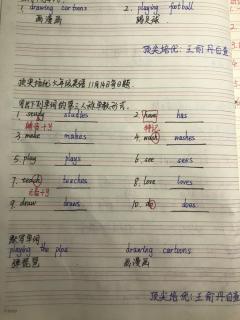 1. drawing cartoons 2. playing football
画漫画 踢足球
顶尖培优:王俞丹自查
顶尖培优六年级英语 11月14日每日题.
写出下列单词的第三人称单数形式.
1. study studies 2. have has
辅音+y 特记
3. make makes 4. wash washes
5. play plays 6. see sees
7. teach teaches 8. love loves
元音+y
9. draw draws 10. do does
默写单词
playing the pipa drawing cartoons
弹琵琶 画漫画
顶尖培优:王俞丹自查